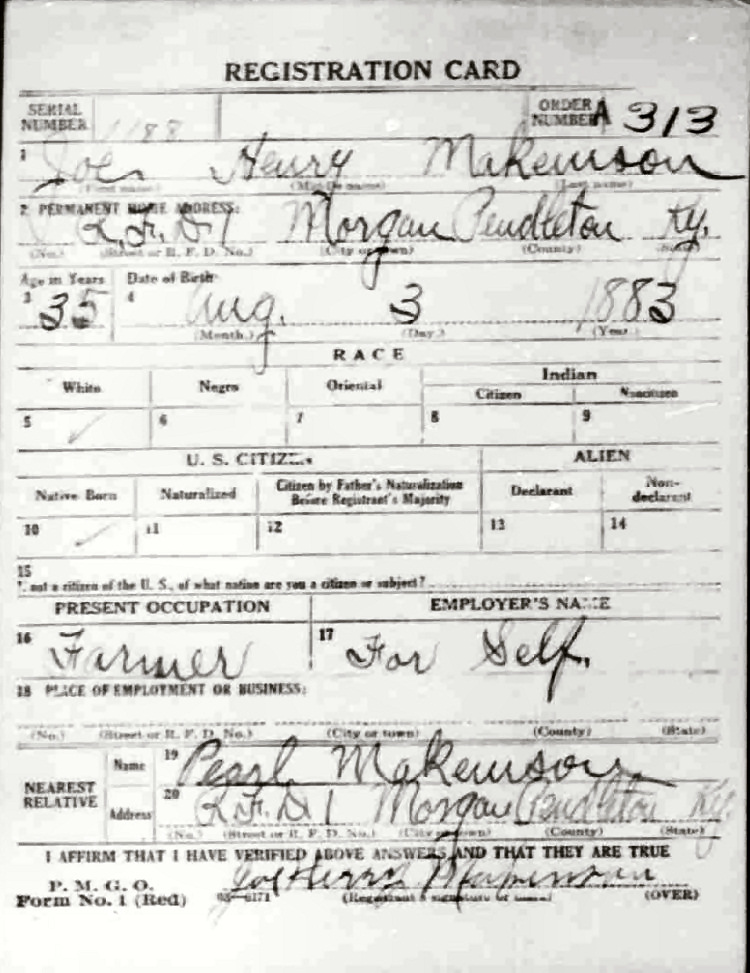 REGISTRATION CARD
SERIAL NUMBER 1188 ORDER NUMBER A 313
1 Joe Henry Makemson
(First name) (Middle name) (Last name)
2 PERMANENT HOME ADDRESS:
R.F.D. 1 Morgan Pendleton Ky.
(No.) (Street or R. F. D. No.) (City or town) (County) (State)
Age in Years Date of Birth
3 35 4 Aug. 3 1883
(Month.) (Day.) (Year.)
RACE
White Negro Oriental Indian
Citizen Noncitizen
5 ✓ 6 7 8 9
U. S. CITIZEN ALIEN
Native Born Naturalized Citizen by Father's Naturalization Before Registrant's Majority Declarant Non-declarant
10 ✓ 11 12 13 14
15
If not a citizen of the U. S., of what nation are you a citizen or subject?
PRESENT OCCUPATION EMPLOYER'S NAME
16 Farmer 17 For Self.
18 PLACE OF EMPLOYMENT OR BUSINESS:
(No.) (Street or R. F. D. No.) (City or town) (County) (State)
NEAREST RELATIVE
Name 19 Pearl Makemson
Address 20 R.F.D 1 Morgan Pendleton Ky
(No.) (Street or R. F. D. No.) (City or town) (County) (State)
I AFFIRM THAT I HAVE VERIFIED ABOVE ANSWERS AND THAT THEY ARE TRUE
P. M. G. O.
Form No. 1 (Red) 03—6171 Joe Henry Makemson
(Registrant's signature or mark) (OVER)